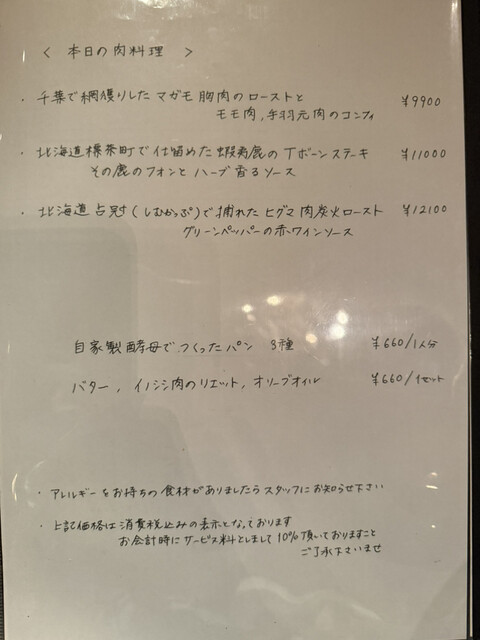 < 本日の肉料理 >
・千葉で網獲りしたマガモ胸肉のローストと ¥9900
モモ肉,手羽元肉のコンフィ
・北海道標茶町で仕留めた蝦夷鹿のTボーンステーキ ¥11000
その鹿のフォンとハーブ香るソース
・北海道占冠(しむかっぷ)で捕れたヒグマ肉炭火ロースト ¥12100
グリーンペッパーの赤ワインソース
自家製酵母でつくったパン 3種 ¥660/1人分
バター,イノシシ肉のリエット,オリーブオイル ¥660/1セット
・アレルギーをお持ちの食材がありましたらスタッフにお知らせ下さい
・上記価格は消費税込みの表示となっております
お会計時にサービス料としまして10%頂いておりますこと
ご了承下さいませ